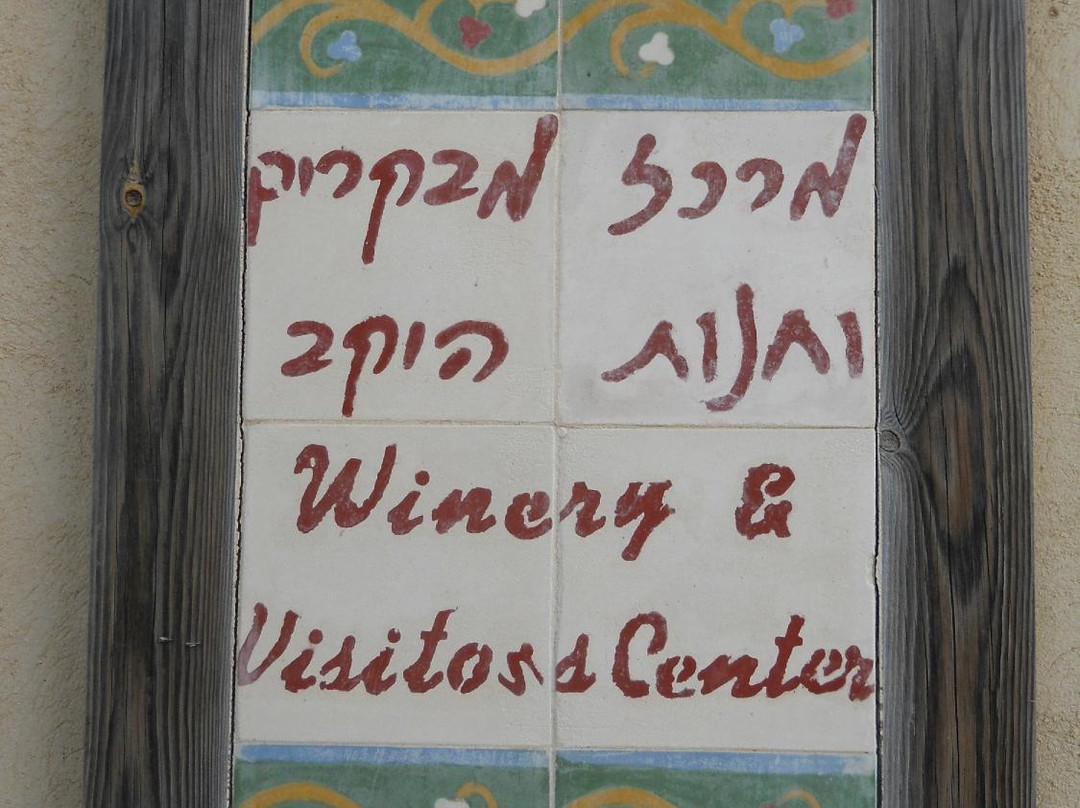 מרכז מבקרים
וחנות היקב
Winery &
Visitors Center